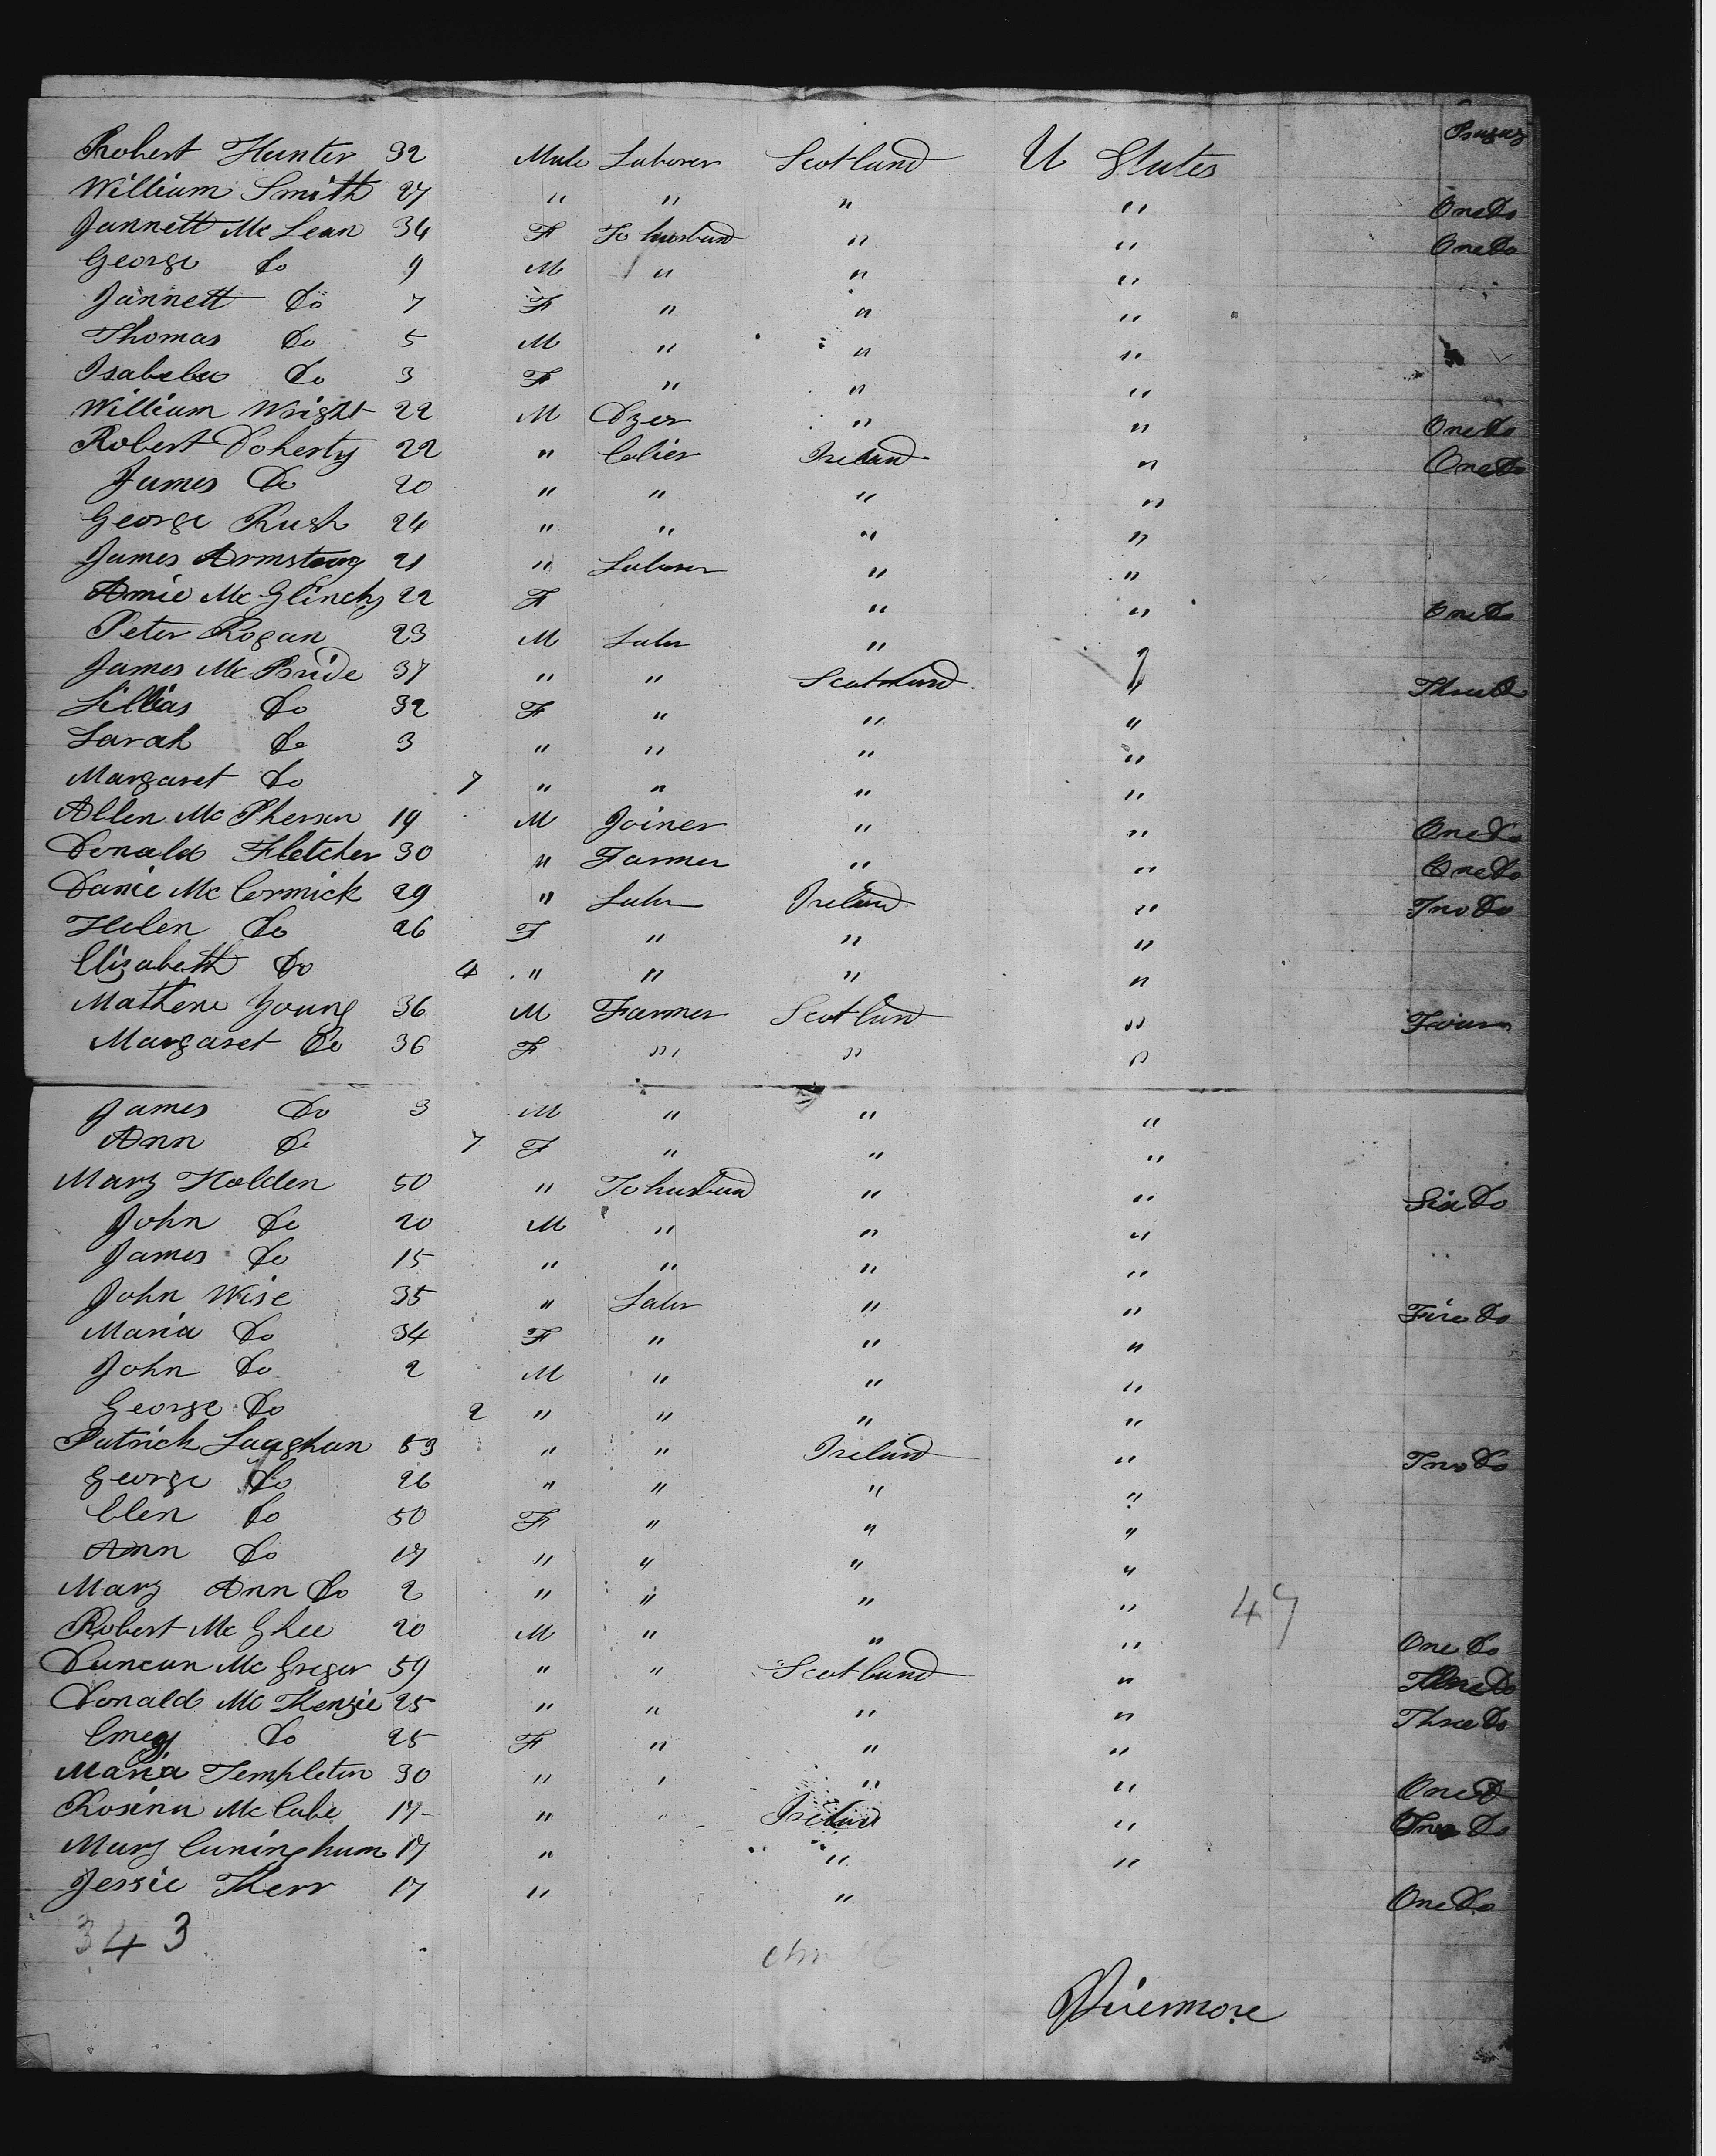 Robert Hunter 32 Male Laborer Scotland U States
William Smith 27 " " " " One Do
Jannett Mc Lean 34 F To husband " " One Do
George Do 9 M " " "
Jannett Do 7 F " " "
Thomas Do 5 M " " "
Isabela Do 3 F " " "
William Wright 22 M Dyer " " One Do
Robert Doherty 22 " Colier Ireland " One Do
James Do 20 " " " "
George Rush 24 " " " "
James Armstrong 21 " Laborer " "
Annie Mc Glinchy 22 F " " One Do
Peter Rogan 23 M Labr " "
James Mc Bride 37 " " Scotland " Three Do
Lillias Do 32 F " " "
Sarah Do 3 " " " "
Margaret Do 7 " " " "
Allen Mc Pherson 19 M Joiner " " One Do
Donald Fletcher 30 " Farmer " " One Do
Danie Mc Cormick 29 " Labr Ireland " Two Do
Helen Do 26 F " " "
Elizabeth Do 4 " " " "
Mathew Young 36 M Farmer Scotland " Four
Margaret Do 36 F " " "
James Do 3 M " " "
Ann Do 7 F " " "
Mary Holden 50 " To husband " " Six Do
John Do 20 M " " "
James Do 15 " " " "
John Wise 35 " Labr " " Five Do
Maria Do 34 F " " "
John Do 2 M " " "
George Do 2 " " " "
Patrick Laughan 53 " " Ireland " Two Do
George Do 26 " " " "
Elen Do 50 F " " "
Ann Do 17 " " " "
Mary Ann Do 2 " " " "
Robert Mc Ghee 20 M " " " One Do
Duncan Mc Gregor 59 " " Scotland "
Donald Mc Kenzie 25 " " " " Three Do
Do 25 F " " "
Maria Templeton 30 " " " " One Do
Rosina Mc Cabe 17 " Ireland " Do
Mary Cuningham 17 " " "
Jessie Kerr 17 " " One Do
49
343